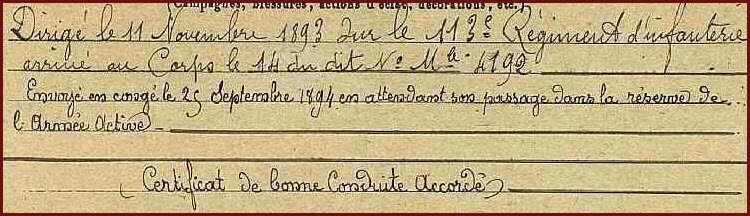 (Campagnes, blessures, actions d'éclat, décorations, etc.)
Dirigé le 11 Novembre 1893 sur le 113e Régiment d'infanterie
arrivé au Corps le 14 du dit No Mle 4192
Envoyé en congé le 25 Septembre 1894 en attendant son passage dans la réserve de
l'Armée Active
(Certificat de bonne Conduite Accordé)